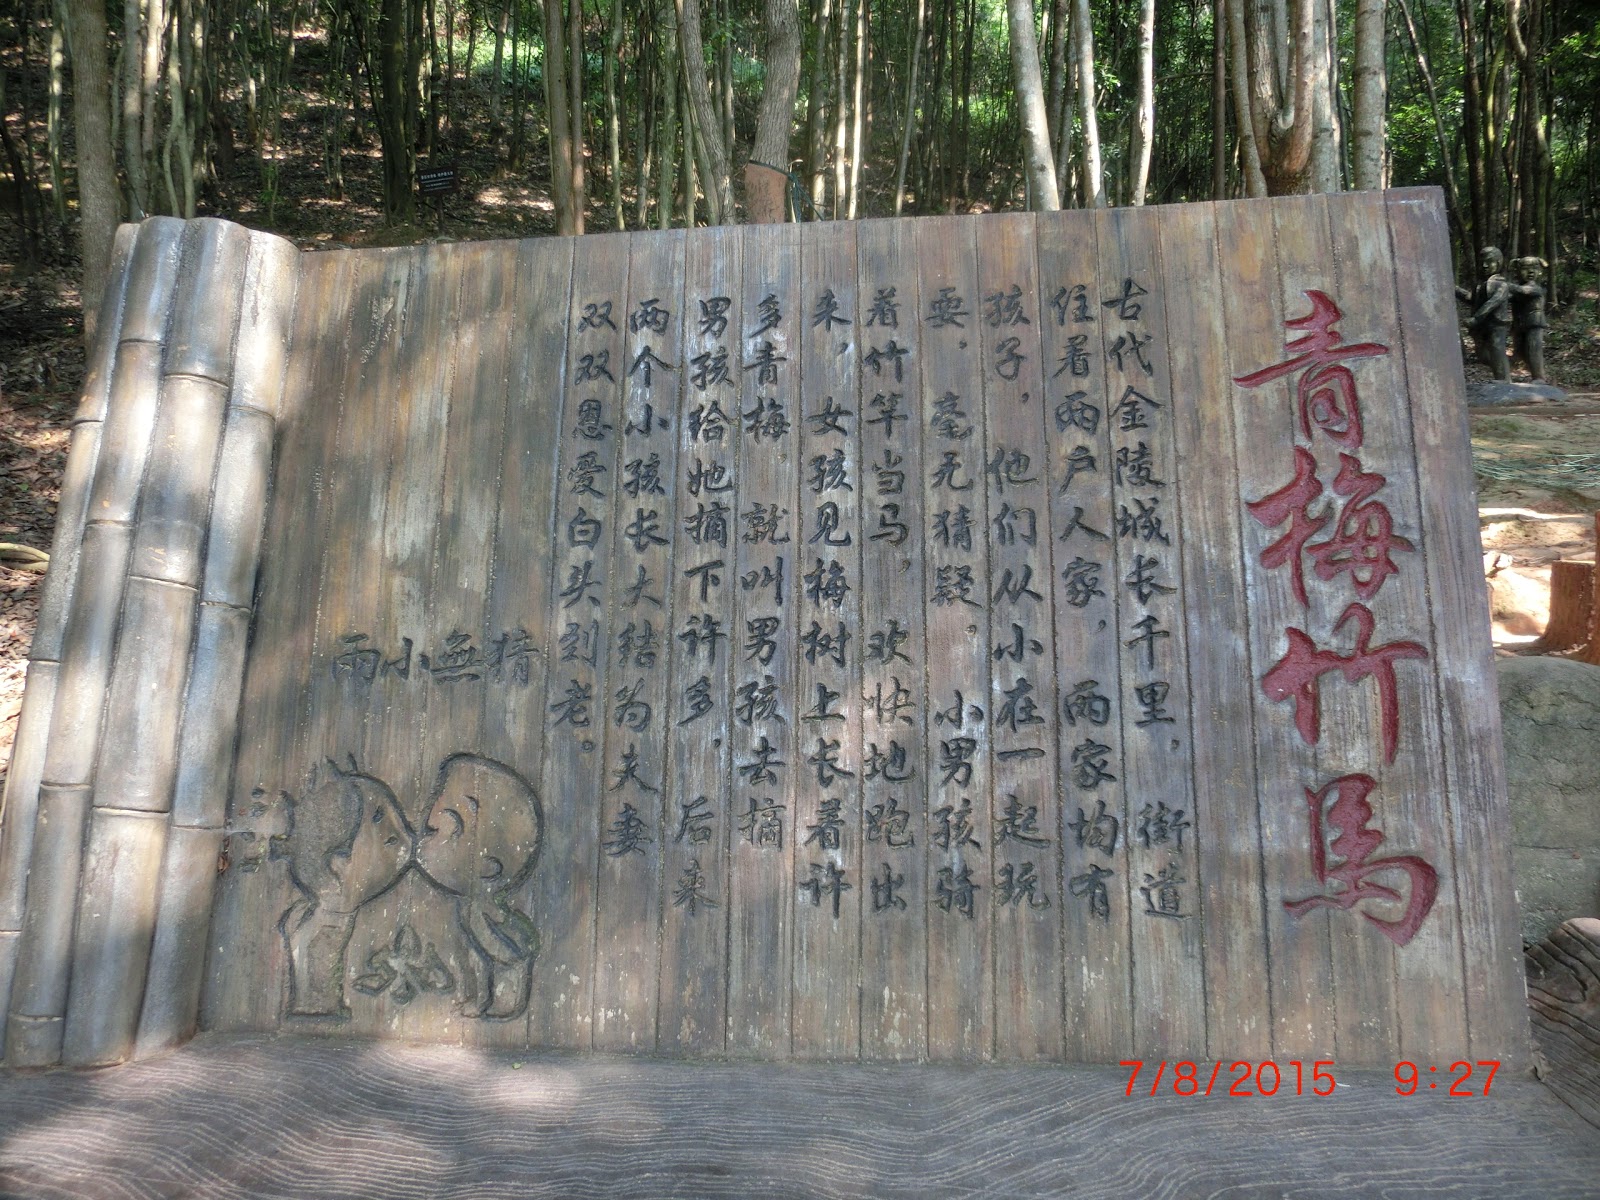 青梅竹馬
古代金陵城长千里，街道
住着两户人家，两家均有
孩子，他们从小在一起玩
耍，毫无猜疑，小男孩骑
着竹竿当马，欢快地跑出
来，女孩见梅树上长着许
多青梅，就叫男孩去摘
男孩给她摘下许多，后来
两个小孩长大结为夫妻
双双恩爱白头到老。
兩小無猜
7/8/2015 9:27